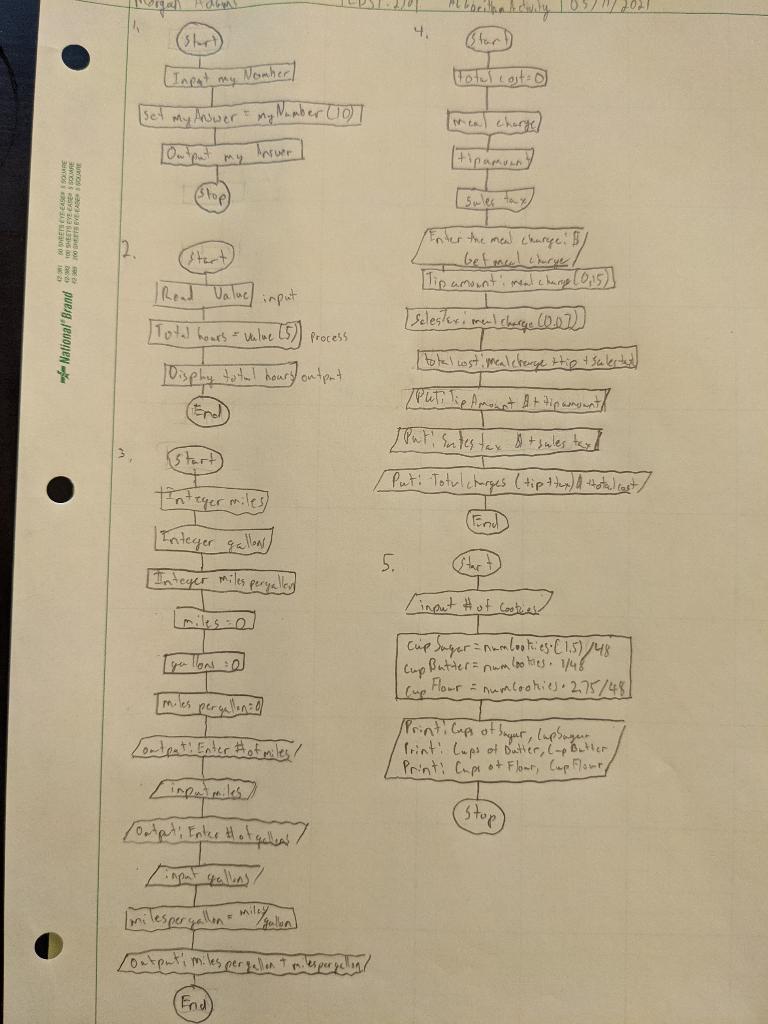 Morgan Adams
Algorithm Activity
05/11/2021
42-381 50 SHEETS EYE-EASE® 5 SQUARE
42-382 100 SHEETS EYE-EASE® 5 SQUARE
42-389 200 SHEETS EYE-EASE® 5 SQUARE
National® Brand
1.
Start
Input my Number
set myAnswer = myNumber (10)
Output my Answer
Stop
2.
Start
Read Value input
Total hours = value (5) process
Display total hours output
End
3.
Start
Integer miles
Integer gallons
Integer miles per gallon
miles = 0
gallons = 0
miles per gallon = 0
output: Enter # of miles
input miles
Output: Enter # of gallons
input gallons
miles per gallon = miles/gallon
output: miles per gallon + miles per gallon
End
4.
Start
total cost = 0
meal charge
tip amount
sales tax
Enter the meal charge: $
Get meal charge
Tip amount: meal charge (0.15)
Sales Tax: meal charge (0.07)
total cost: meal charge + tip + sales tax
Put: Tip Amount $ + tip amount
Put: Sales tax $ + sales tax
Put: Total charges (tip + tax) $ + total cost
End
5.
Start
input # of cookies
cup Sugar = numCookies · (1.5)/48
cup Butter = numCookies · 1/48
cup Flour = numCookies · 2.75/48
Print: Cups of Sugar, Cup Sugar
Print: Cups of Butter, Cup Butter
Print: Cups of Flour, Cup Flour
Stop